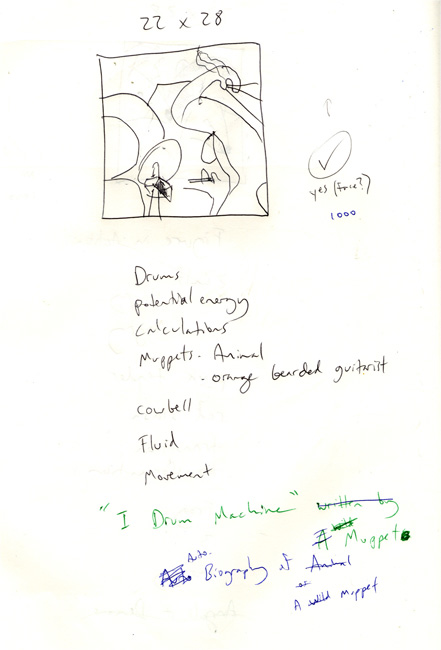 22 x 28
yes (free?)
1000
Drums
potential energy
calculations
Muppets - Animal
- orange bearded guitarist
Cowbell
Fluid
Movement
"I Drum Machine" written by
A Muppet
Auto-
Biography of Animal
or
A Wild Muppet